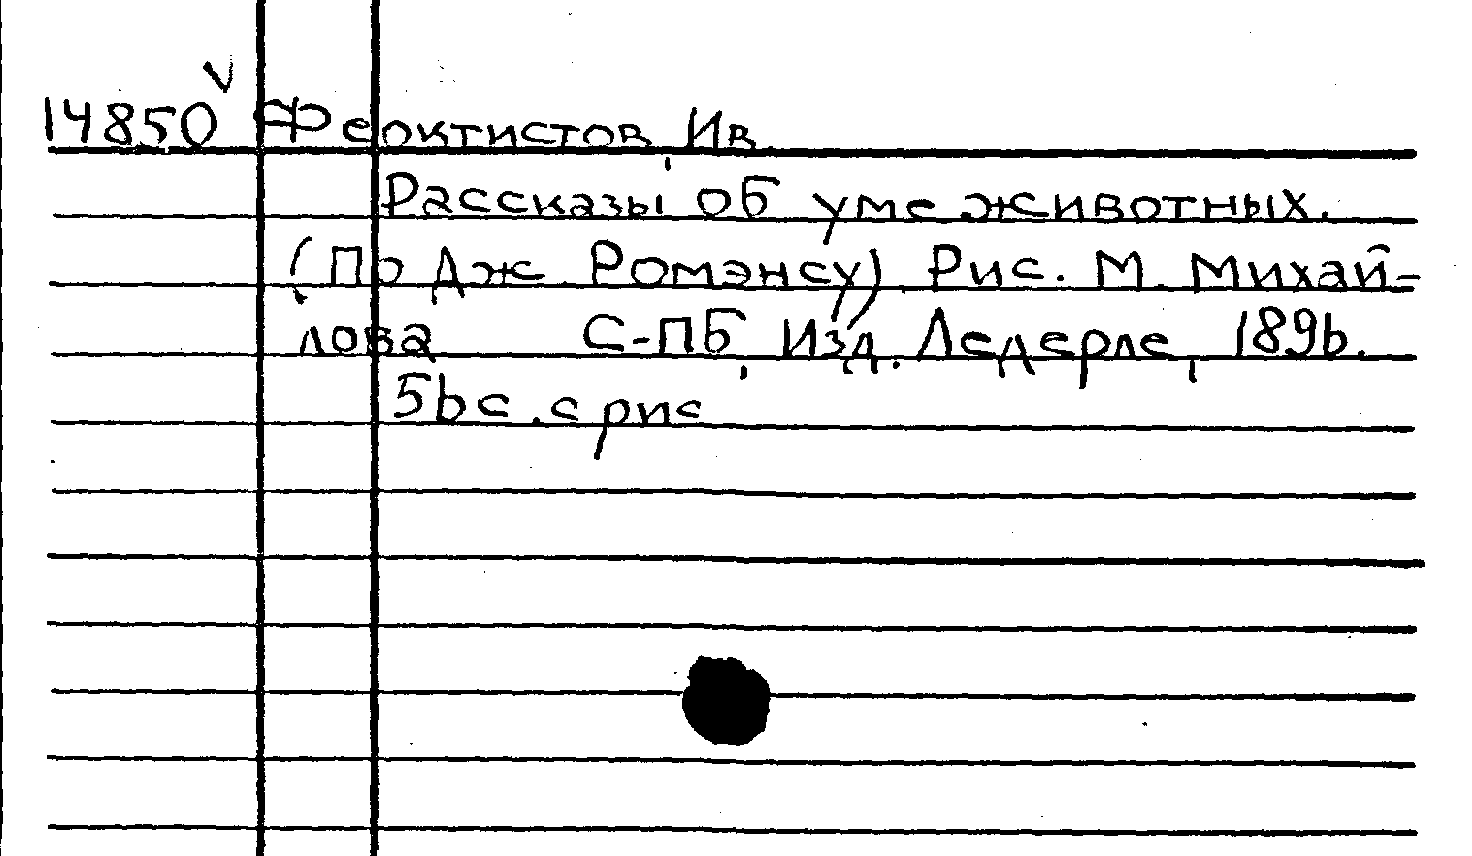 14850 v Феоктистов, Ив.
Рассказы об уме животных.
(По Дж. Романсу). Рис. М. Михай-
лова С-ПБ, Изд. Ледерле, 1896.
56 с. с рис